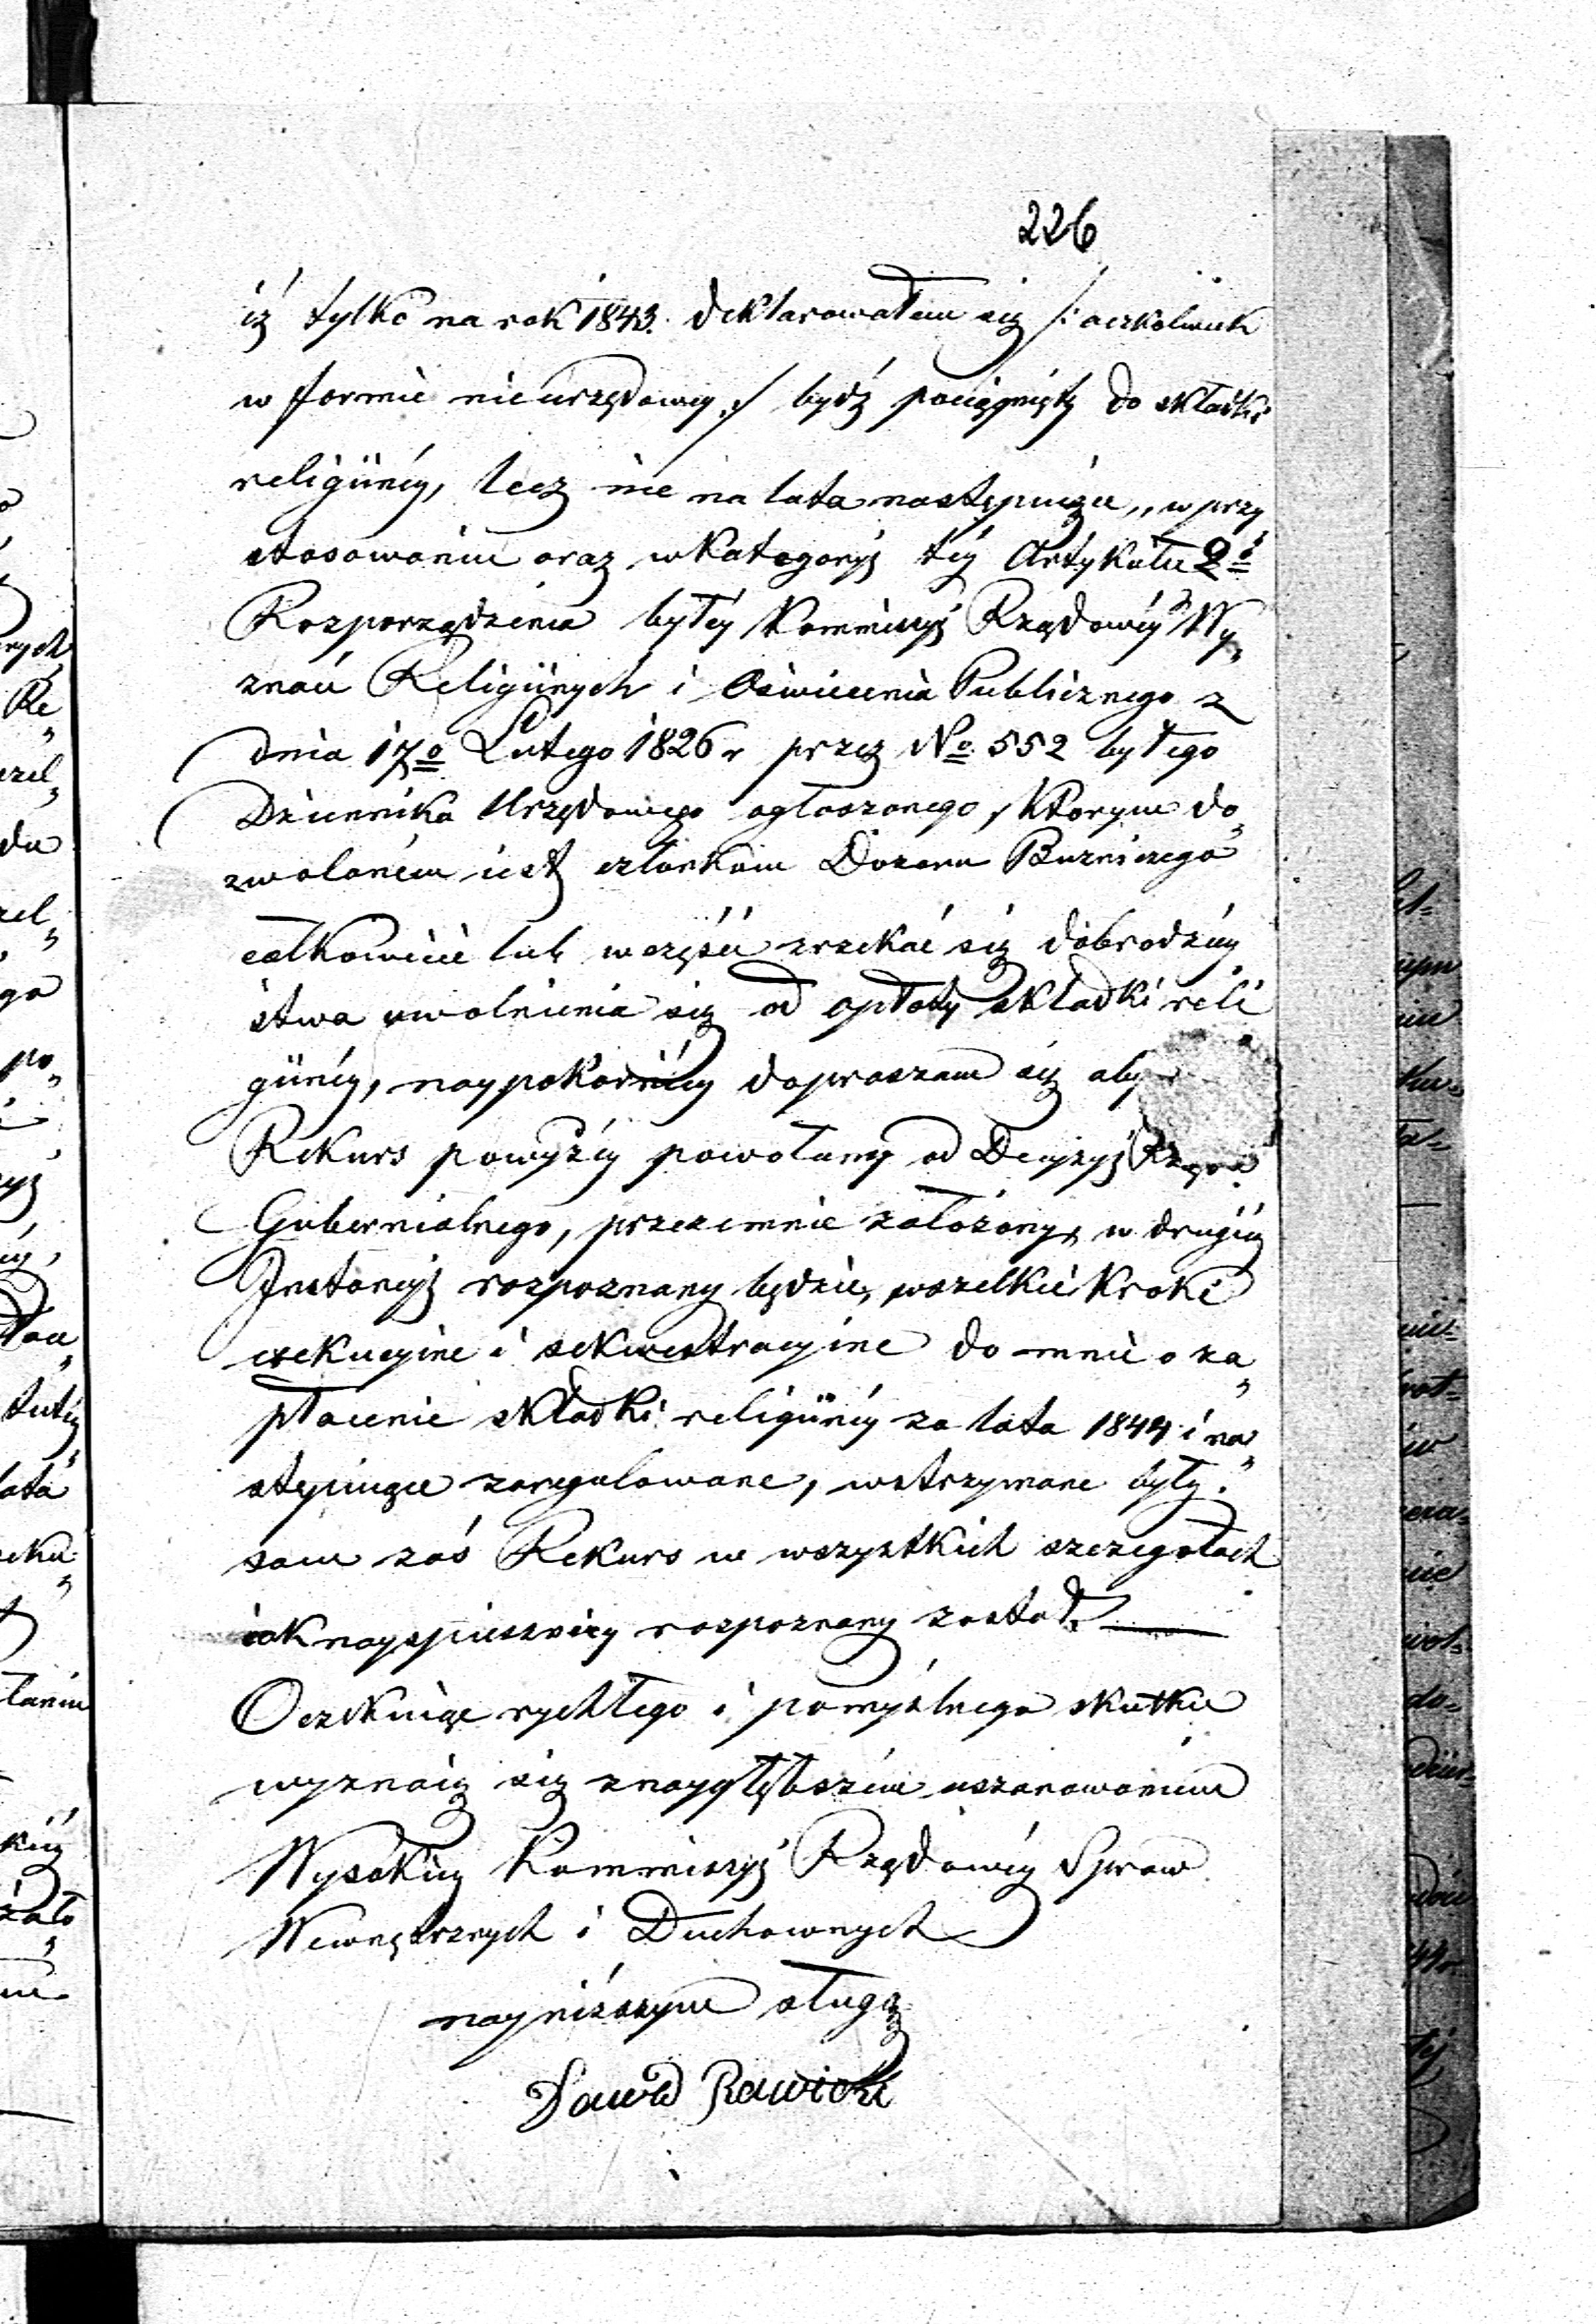 226
iż tylko na rok 1843. deklarowałem się /: aczkolwiek
w formie nieurzędowey :/ bydź pociągnięty do składki
religiinéy, lecz nie na lata następuiące,, w przy
stosowaniu oraz w kategoryi téy Artykułu 2o
Rozporządzenia byłéy Kommissyi Rządowéy Wy„
znań Religiinych i Oświecenia Publicznego z
dnia 17o Lutego 1826 r przez No 552 byłego
Dziennika Urzędowego ogłoszonego, którym do„
zwoloném iest członkom Dozoru Bużniczego
całkowicie lub w części zrzekać się dobrodziey
stwa uwolnienia się od opłaty składki reli
giinéy, naypokorniéy dopraszam się aby
Rekurs powyżéy powołany od Decyzyi Rządu
Gubernialnego, przezemnie założony, w drugiéy
Instancyi rozpoznany będzie, wszelkie kroki
exekucyine i sekwestracyine do mnie o za„
płacenie składki religiinéy za lata 1844 i na„
stępuiące zaregulowane, wstrzymane były.
sam zaś Rekurs we wszystkich szczegółach
iak nayspieszniéy rozpoznany został.
Oczekuiąc rychłego i pomyślnego skutku
wyznaię się z naygłębszém uszanowaniem
Wysokiéy Kommissyi Rządowéy Spraw
Wewnętrznych i Duchownych
nayniższym sługą
Dawid Rawicki